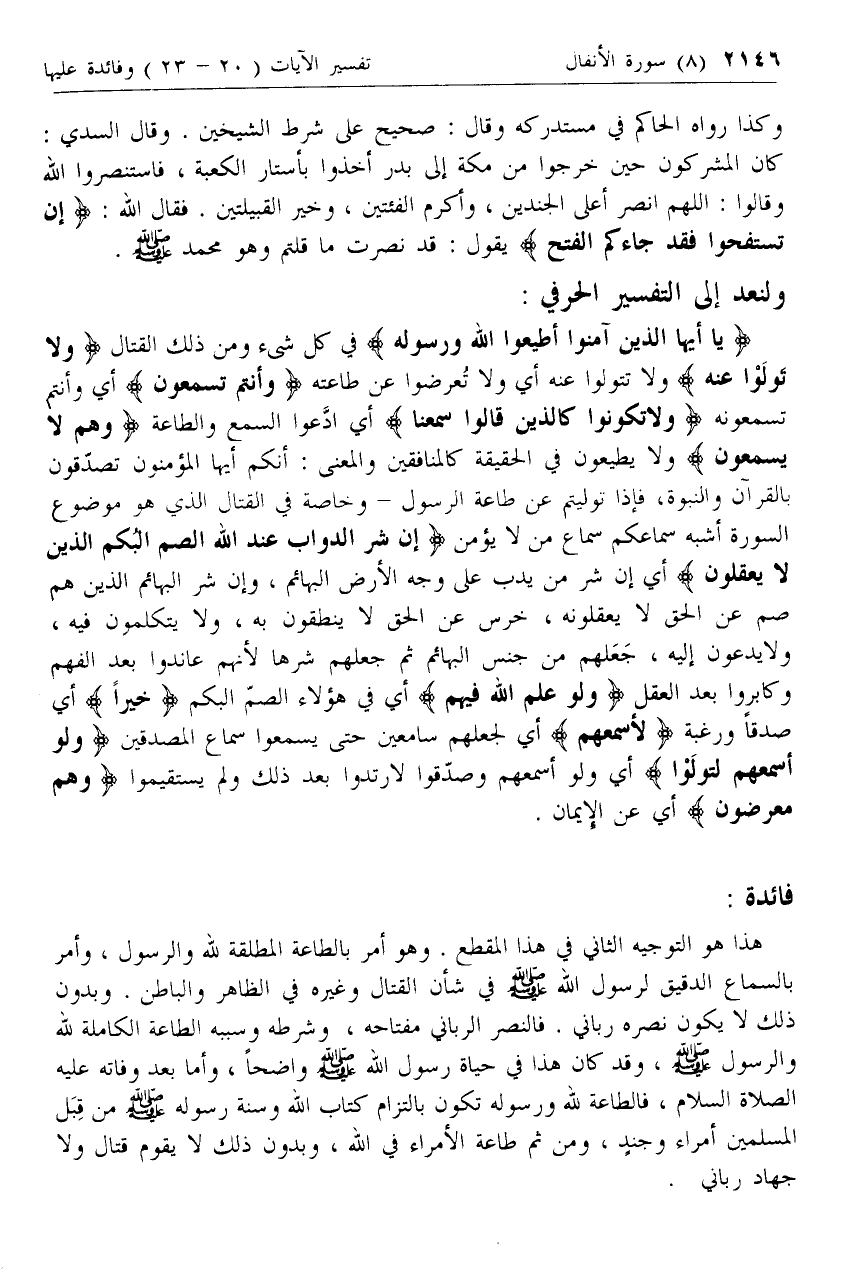 ٢١٤٦ (٨) سورة الأنفال تفسير الآيات ( ٢٠ – ٢٣ ) وفائدة عليها
وكذا رواه الحاكم في مستدركه وقال : صحيح على شرط الشيخين . وقال السدي :
كان المشركون حين خرجوا من مكة إلى بدر أخذوا بأستار الكعبة ، فاستنصروا الله
وقالوا : اللهم انصر أعلى الجندين ، وأكرم الفئتين ، وخير القبيلتين . فقال الله : ﴿ إن
تستفتحوا فقد جاءكم الفتح ﴾ يقول : قد نصرت ما قلتم وهو محمد ﷺ .
ولنعد إلى التفسير الحرفي :
﴿ يا أيها الذين آمنوا أطيعوا الله ورسوله ﴾ في كل شيء ومن ذلك القتال ﴿ ولا
تَولَّوْا عنه ﴾ ولا تتولوا عنه أي ولا تُعرضوا عن طاعته ﴿ وأنتم تسمعون ﴾ أي وأنتم
تسمعونه ﴿ ولاتكونوا كالذين قالوا سمعنا ﴾ أي ادَّعوا السمع والطاعة ﴿ وهم لا
يسمعون ﴾ ولا يطيعون في الحقيقة كالمنافقين والمعنى : أنكم أيها المؤمنون تصدّقون
بالقرآن والنبوة، فإذا توليتم عن طاعة الرسول – وخاصة في القتال الذي هو موضوع
السورة أشبه سماعكم سماع من لا يؤمن ﴿ إن شر الدواب عند الله الصم البُكم الذين
لا يعقلون ﴾ أي إن شر من يدب على وجه الأرض البهائم ، وإن شر البهائم الذين هم
صم عن الحق لا يعقلونه ، خرس عن الحق لا ينطقون به ، ولا يتكلمون فيه ،
ولايدعون إليه ، جَعَلهم من جنس البهائم ثم جعلهم شرها لأنهم عاندوا بعد الفهم
وكابروا بعد العقل ﴿ ولو علم الله فيهم ﴾ أي في هؤلاء الصمّ البكم ﴿ خيراً ﴾ أي
صدقاً ورغبة ﴿ لأسمعهم ﴾ أي لجعلهم سامعين حتى يسمعوا سماع المصدقين ﴿ ولو
أسمعهم لتولَوْا ﴾ أي ولو أسمعهم وصدّقوا لارتدوا بعد ذلك ولم يستقيموا ﴿ وهم
معرضون ﴾ أي عن الإيمان .
فائدة :
هذا هو التوجيه الثاني في هذا المقطع . وهو أمر بالطاعة المطلقة لله والرسول ، وأمر
بالسماع الدقيق لرسول الله ﷺ في شأن القتال وغيره في الظاهر والباطن . وبدون
ذلك لا يكون نصره رباني . فالنصر الرباني مفتاحه ، وشرطه وسببه الطاعة الكاملة لله
والرسول ﷺ ، وقد كان هذا في حياة رسول الله ﷺ واضحاً ، وأما بعد وفاته عليه
الصلاة السلام ، فالطاعة لله ورسوله تكون بالتزام كتاب الله وسنة رسوله ﷺ من قِبَل
المسلمين أمراء وجندٍ ، ومن ثم طاعة الأمراء في الله ، وبدون ذلك لا يقوم قتال ولا
جهاد رباني .